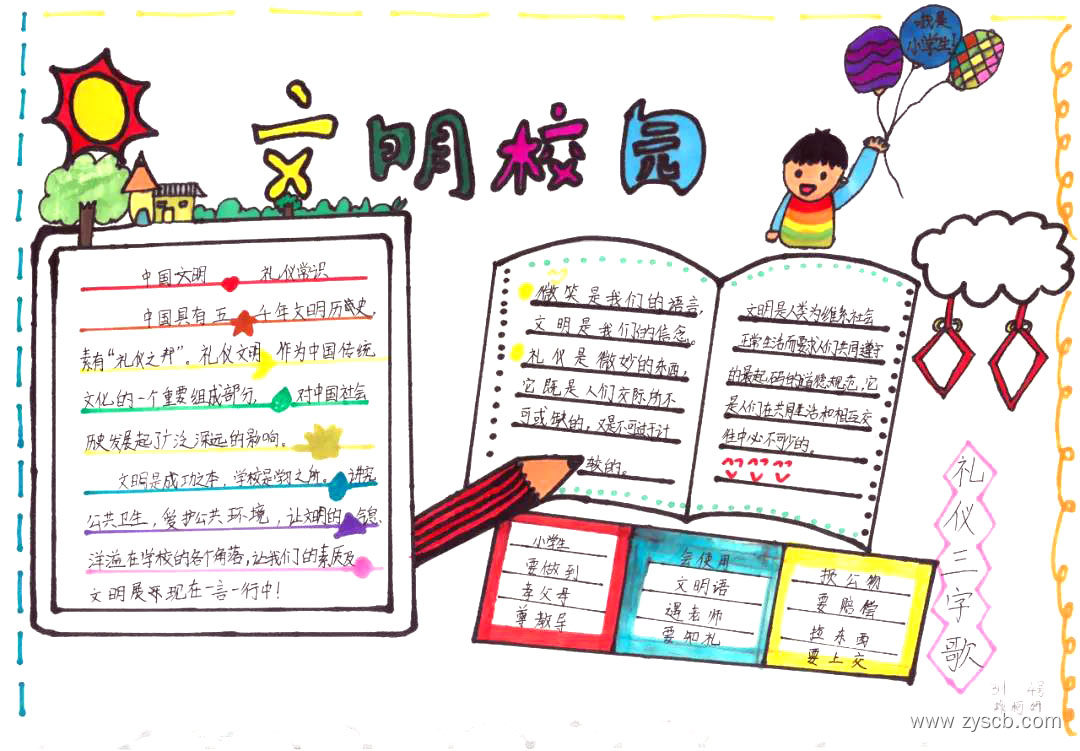 文明校园
我是
小学生!
中国文明 礼仪常识
中国具有五千年文明历史,
素有“礼仪之邦”。礼仪文明 作为中国传统
文化的一个重要组成部分, 对中国社会
历史发展起了广泛深远的影响。
文明是成功之本,学校是学习之所。讲究
公共卫生,爱护公共环境,让文明的气息
洋溢在学校的各个角落,让我们的素质及
文明展示现在一言一行中!
微笑是我们的语言,
文明是我们的信念。
礼仪是微妙的东西,
它既是人们交际所不
可或缺的,又是不可过于计
较的。
文明是人类为维系社会
正常生活而要求人们共同遵守
的最起码的道德规范,它
是人们在共同生活和相互交
往中必不可少的。
小学生
要做到
孝父母
尊教导
会使用
文明语
遇老师
要知礼
损公物
要赔偿
捡东西
要上交
礼仪三字歌
31 4号
www.zyscb.com